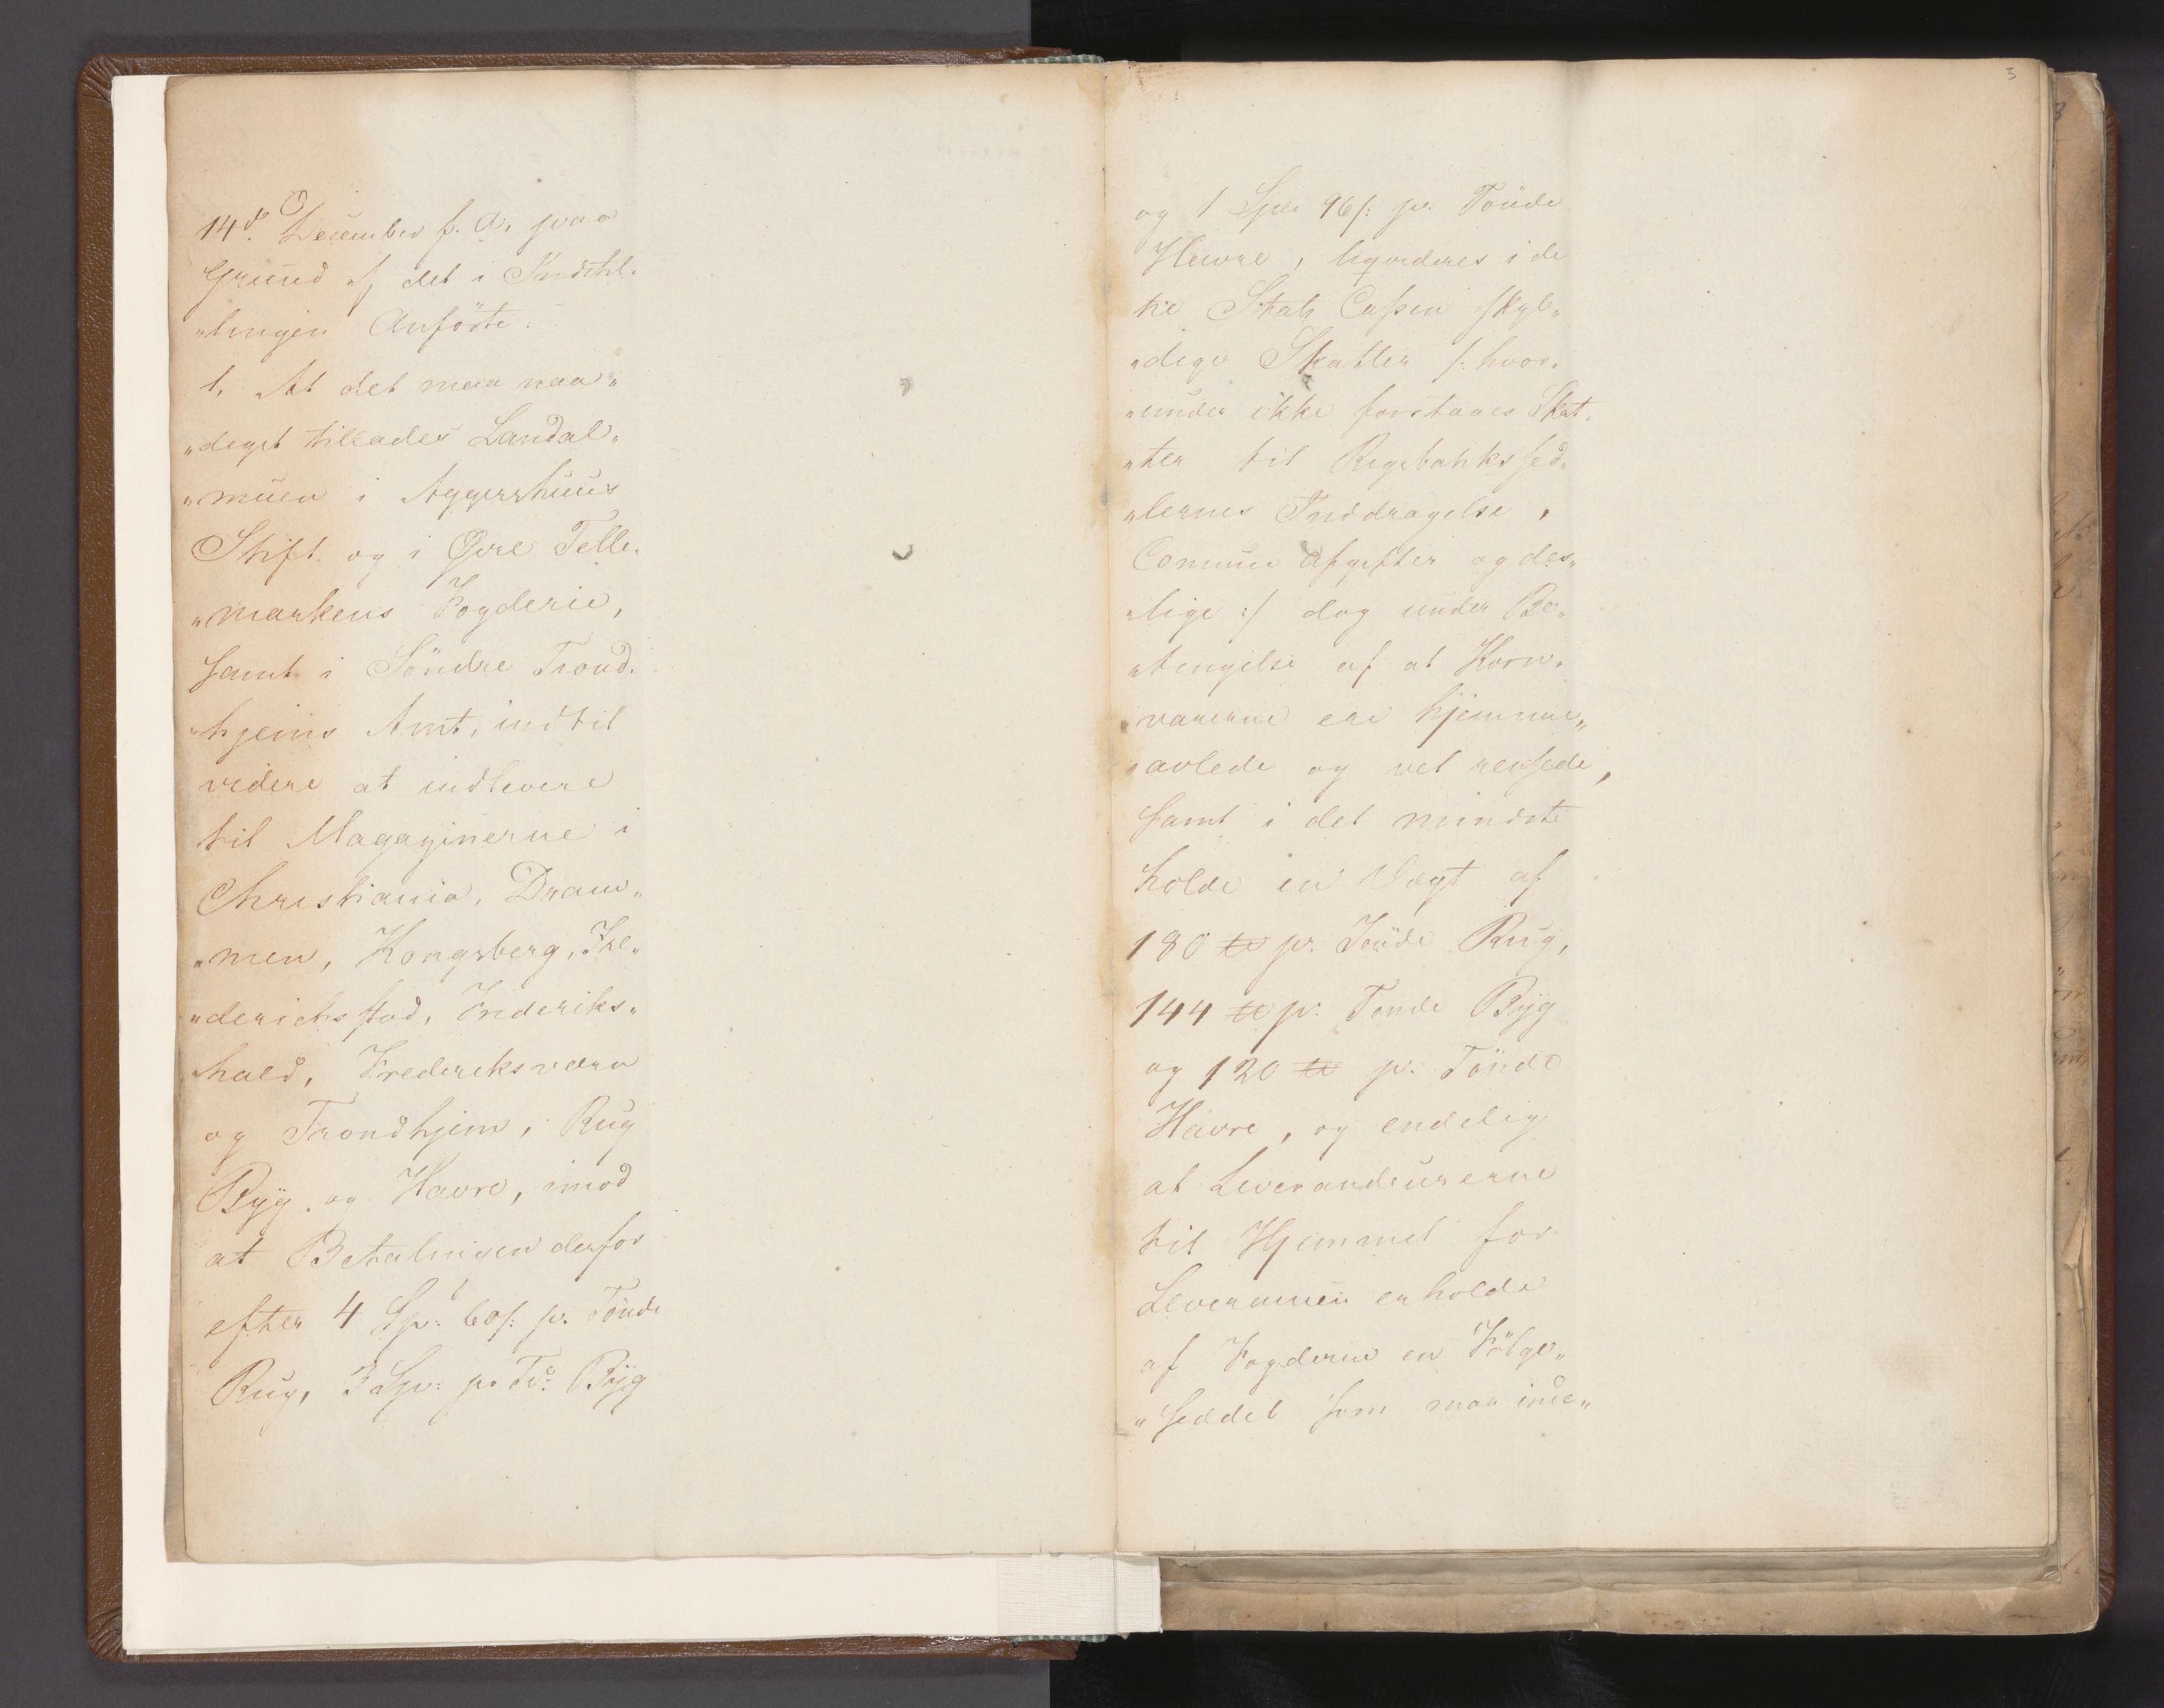 14de December f. A. paa
Grund af det i Indstil„
„lingen Anförte:
1, At det maa naa„
„digst tillades Landal„
„muen i Aggershuus
Stift og i Övre Telle„
„markens Fogderie,
samt i Söndre Trond„
„hjems Amt, indtil
videre at indlevere
til Magazinerne i
Christiania, Dram„
„men, Kongsberg, Fre„
„derichsstad, Frideriks„
„hald, Frederiksværn
og Trondhjem, Rug
Byg og Havre, imod
at Betalningen derfor
efter 4 Sp: 60 s: pr. Tönde
Rug, 3 Sp: pr Td: Byg
3
og 1 Spd 96 s: pr. Tönde
Havre, liqvideres i de
til Stats Cassen skyl„
„dige Skatter /: hvor„
„under ikke forstaaes Skat„
„ter til Rigsbankssed„
„lernes Inddragelse,
Comune Afgifter og des„
„lige :/ dog under Be„
„tingelse af at Korn„
„varerne ere hjemme„
„avlede og vel rensede,
samt i det mindste
holde en Vægt af
180 ℔ pr. Tönde Rug,
144 ℔ pr. Tönde Byg
og 120 ℔ pr. Tönde
Havre, og endelig
at Leverandeurerne
til Hjemmel for
Leverancen erholde
af Fogderne en Fölge„
„seddel som maa inde„